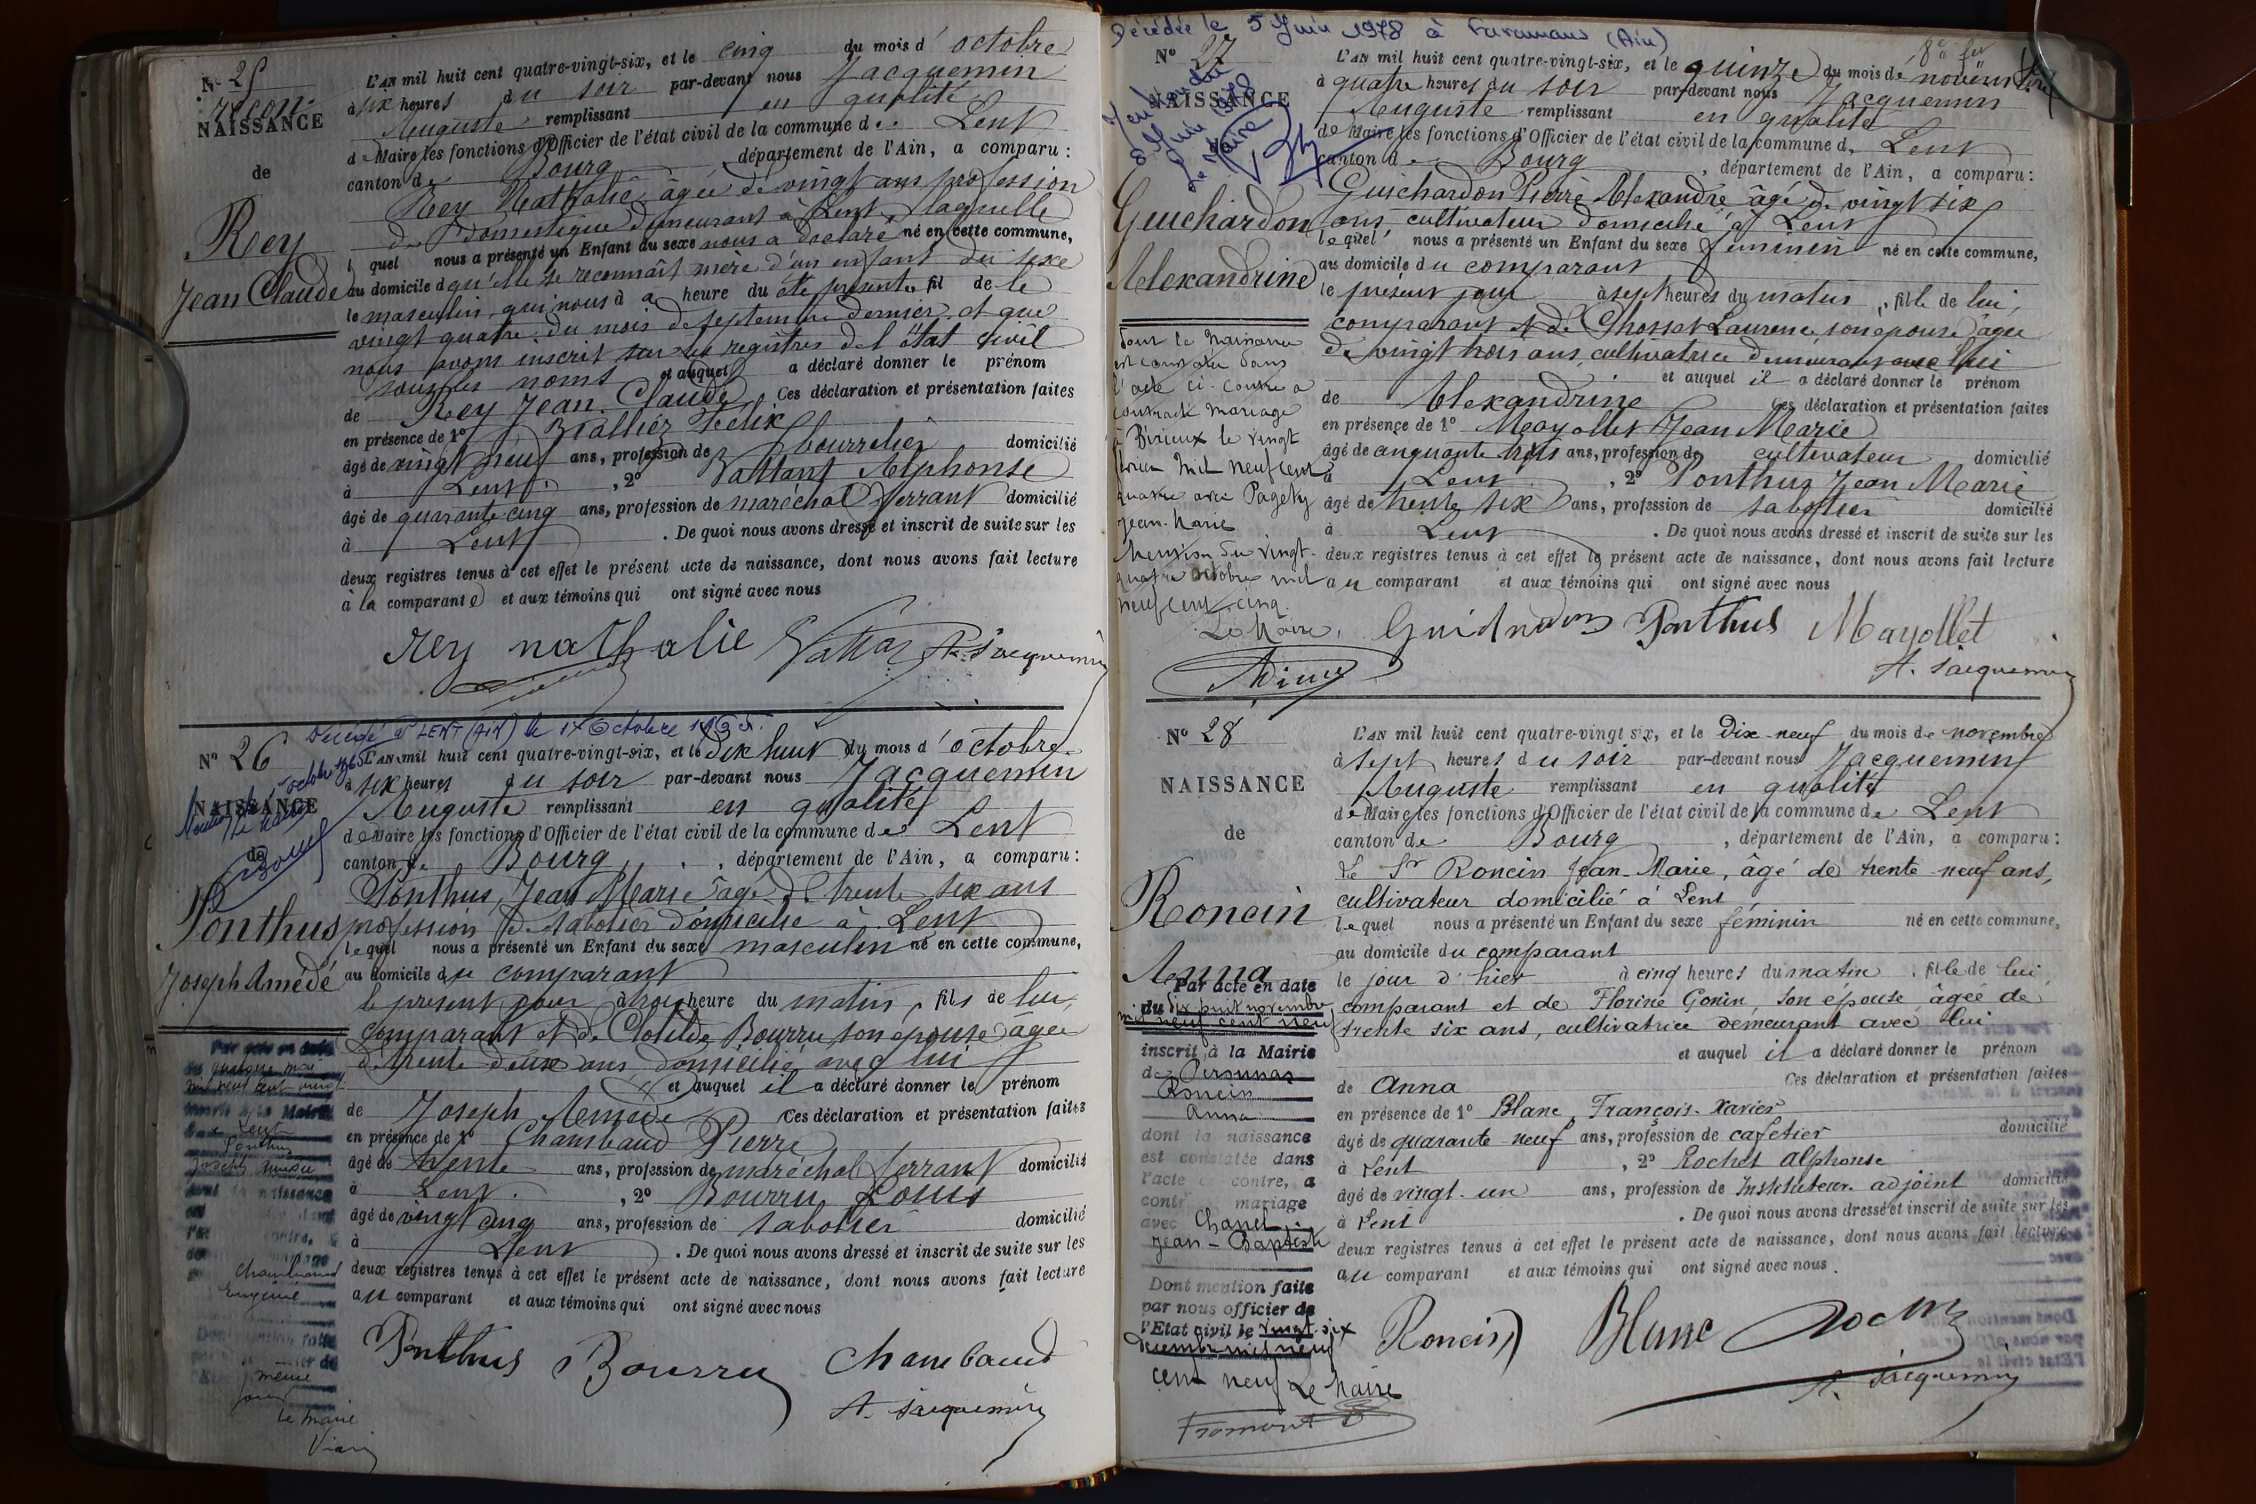 N° 25
recon.
NAISSANCE
de
Rey
Jean Claude
L'AN mil huit cent quatre-vingt-six, et le cinq du mois d'octobre
à six heures du soir par-devant nous Jacquemin
Auguste remplissant en qualité
de Maire les fonctions d'Officier de l'état civil de la commune de Lent
canton de Bourg, département de l'Ain, a comparu:
Rey Nathalie âgée de vingt ans profession
de domestique demeurant à Lent, laquelle
l quel nous a présenté un Enfant du sexe nous a déclaré né en cette commune,
au domicile d qu'elle se reconnaît mère d'un enfant du sexe
le masculin, qui nous a heure du été présenté, fil de le
vingt quatre du mois de septembre dernier, et que
nous avons inscrit sur les registres de l'état civil
sous les noms et auquel a déclaré donner le prénom
de Rey Jean Claude Ces déclaration et présentation faites
en présence de 1° Brallier Félix
âgé de vingt neuf ans, profession de bourrelier domicilié
à Lent, 2° Vattant Alphonse
âgé de quarante cinq ans, profession de maréchal ferrant domicilié
à Lent. De quoi nous avons dressé et inscrit de suite sur les
deux registres tenus à cet effet le présent acte de naissance, dont nous avons fait lecture
à la comparante et aux témoins qui ont signé avec nous
rey nathalie A. Jacquemin
Décédé à LENT (AIN) le 17 Octobre
N° 26
NAISSANCE
de
Ponthus
Joseph Amédé
L'AN mil huit cent quatre-vingt-six, et le Dix huit du mois d'octobre
à six heures du soir par-devant nous Jacquemin
Auguste remplissant en qualité
de Maire les fonctions d'Officier de l'état civil de la commune de Lent
canton de Bourg, département de l'Ain, a comparu:
Ponthus, Jean Marie âgé de trente six ans
profession de sabotier domicilié à Lent
lequel nous a présenté un Enfant du sexe masculin né en cette commune,
au domicile du comparant
le présent jour à trois heure du matin, fils de lui,
comparant et de Clotilde Bourru son épouse âgée
de trente deux ans domiciliée avec lui
et auquel il a déclaré donner le prénom
de Joseph Amédé Ces déclaration et présentation faites
en présence de 1° Chambaud Pierre
âgé de trente ans, profession de maréchal ferrant domicilié
à Lent, 2° Bourru Louis
âgé de vingt cinq ans, profession de sabotier domicilié
à Lent. De quoi nous avons dressé et inscrit de suite sur les
deux registres tenus à cet effet le présent acte de naissance, dont nous avons fait lecture
au comparant et aux témoins qui ont signé avec nous
Ponthus Bourru Chambaud
A. Jacquemin
Par acte en date
inscrit à la Mairie
Lent
Ponthus
Chambaud
Eugénie
même
jour
Le Maire
Décédée le 5 Juin 1978 à Faramans (Ain)
N° 27
NAISSANCE
Le Maire
Guichardon
Alexandrine
L'AN mil huit cent quatre-vingt-six, et le quinze du mois de novembre
à quatre heures du soir par-devant nous Jacquemin
Auguste remplissant en qualité
de Maire les fonctions d'Officier de l'état civil de la commune de Lent
canton de Bourg, département de l'Ain, a comparu:
Guichardon Pierre Alexandre âgé de vingt six
ans, cultivateur domicilié à Lent
lequel nous a présenté un Enfant du sexe féminin né en cette commune,
au domicile du comparant
le présent jour à sept heures du matin, fille de lui,
comparant et de Chosset Laurence son épouse âgée
de vingt trois ans, cultivatrice demeurant avec lui
et auquel il a déclaré donner le prénom
de Alexandrine Ces déclaration et présentation faites
en présence de 1° Mayollet Jean Marie
âgé de cinquante trois ans, profession de cultivateur domicilié
à Lent, 2° Ponthus Jean Marie
âgé de trente six ans, profession de sabotier domicilié
à Lent. De quoi nous avons dressé et inscrit de suite sur les
deux registres tenus à cet effet le présent acte de naissance, dont nous avons fait lecture
au comparant et aux témoins qui ont signé avec nous
Dont la naissance
est constatée dans
l'acte ci-contre a
contracté mariage
à Birieux le vingt
février mil neuf cent
quatre avec Pagety
Jean-Marie
Mention du vingt-
quatre octobre mil
neuf cent cinq.
Le Maire,
Guichardon Ponthus Mayollet
A. Jacquemin
N° 28
NAISSANCE
de
Roncin
Anna
L'AN mil huit cent quatre-vingt six, et le Dix-neuf du mois de novembre
à sept heures du soir par-devant nous Jacquemin
Auguste remplissant en qualité
de Maire les fonctions d'Officier de l'état civil de la commune de Lent
canton de Bourg, département de l'Ain, a comparu:
Le Sr Roncin Jean-Marie, âgé de trente-neuf ans,
cultivateur domicilié à Lent
lequel nous a présenté un Enfant du sexe féminin né en cette commune,
au domicile du comparant
le jour d'hier à cinq heures du matin, fille de lui
comparant et de Florine Gonin, son épouse, âgée de
trente six ans, cultivatrice demeurant avec lui
et auquel il a déclaré donner le prénom
de Anna Ces déclaration et présentation faites
en présence de 1° Blanc, François-Xavier
âgé de quarante-neuf ans, profession de cafetier domicilié
à Lent, 2° Rochet Alphonse
âgé de vingt-un ans, profession de Instituteur-adjoint domicilié
à Lent. De quoi nous avons dressé et inscrit de suite sur les
deux registres tenus à cet effet le présent acte de naissance, dont nous avons fait lecture
au comparant et aux témoins qui ont signé avec nous.
Par acte en date
du dix huit novembre
mil neuf cent neuf
inscrit à la Mairie
de Péronnas
Roncin
Anna
dont la naissance
est constatée dans
l'acte ci-contre, a
contr mariage
avec Chanel
Jean-Baptiste
Dont mention faite
par nous officier de
l'Etat civil le vingt-six
décembre mil neuf
cent neuf Le Maire
Fromont
Roncin Blanc Rochet
A. Jacquemin